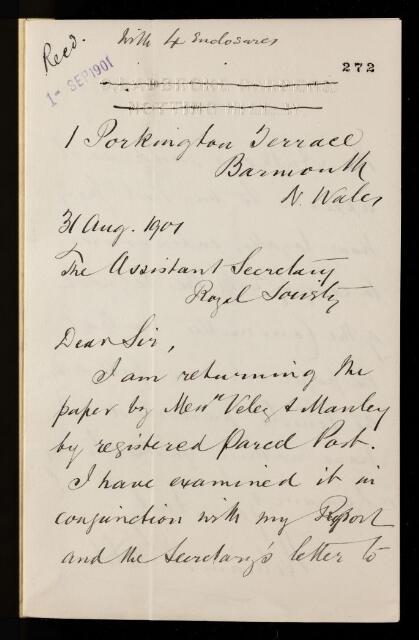 Recd.
With 4 Enclosures
1 - SEP 1901
272
LADBROKE GARDENS
NOTTING HILL. W.
1 Porkington Terrace
Barmouth
N. Wales
31 Aug. 1901
The Assistant Secretary
Royal Society
Dear Sir,
I am returning the
paper by Messrs Veley & Manley
by registered Parcel Post.
I have examined it in
conjunction with my Report
and the Secretary's letter to